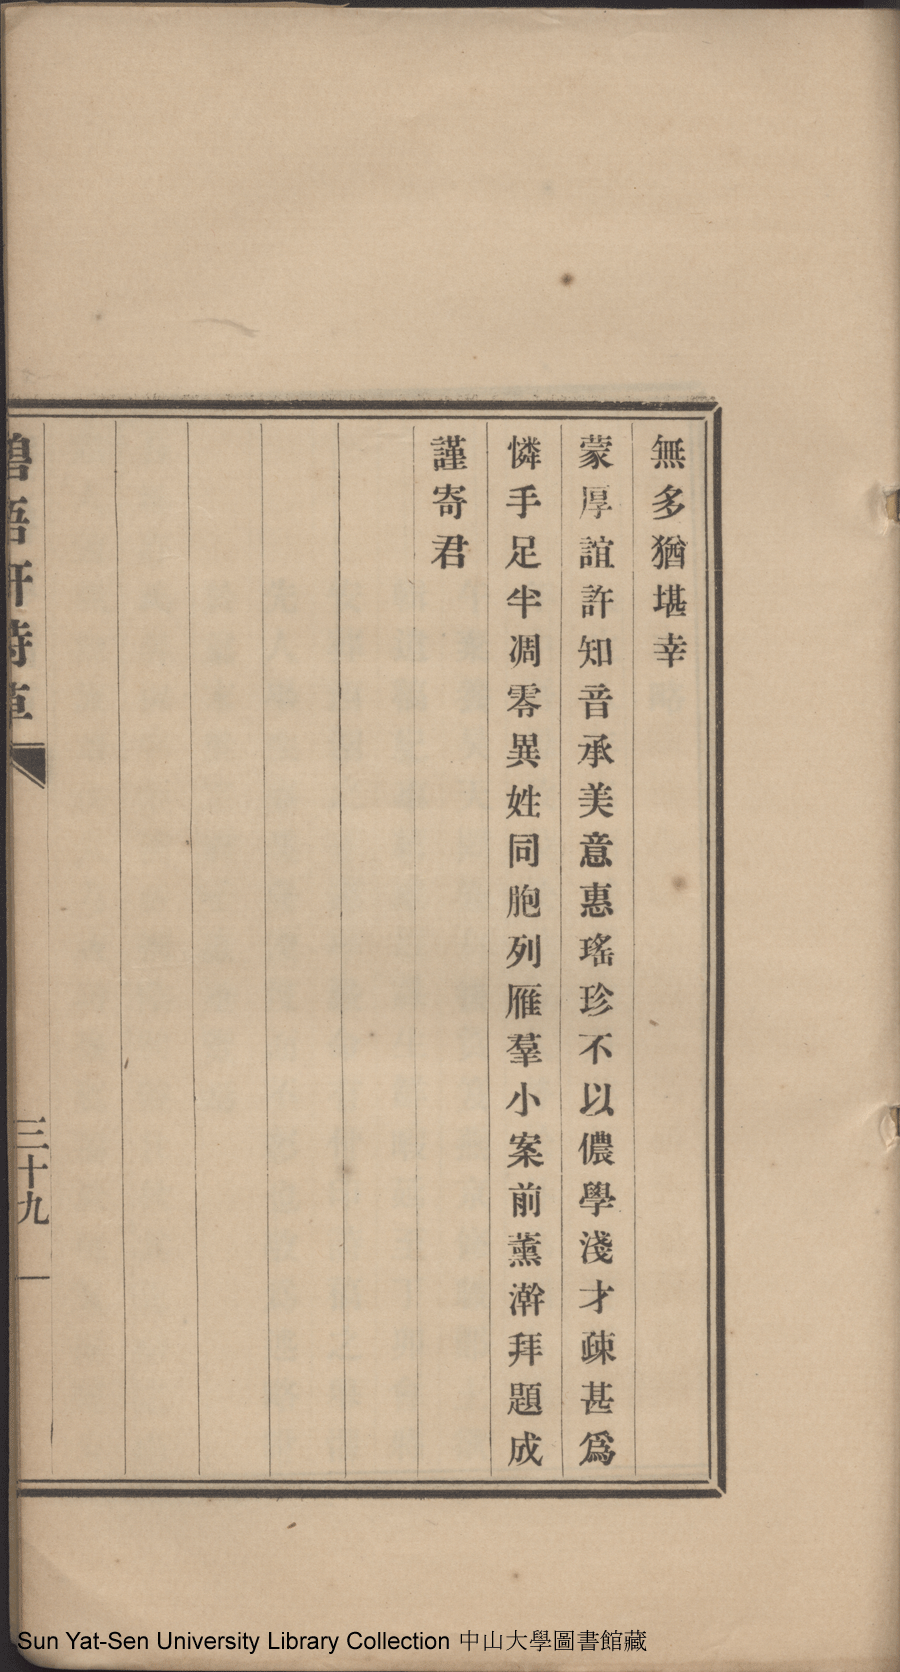 無多猶堪幸
蒙厚誼許知音承美意惠瑤珍不以儂學淺才疎甚爲
憐手足半凋零異姓同胞列雁羣小案前薰澣拜題成
謹寄君
碧梧軒詩草
三十九
Sun Yat-Sen University Library Collection 中山大學圖書館藏